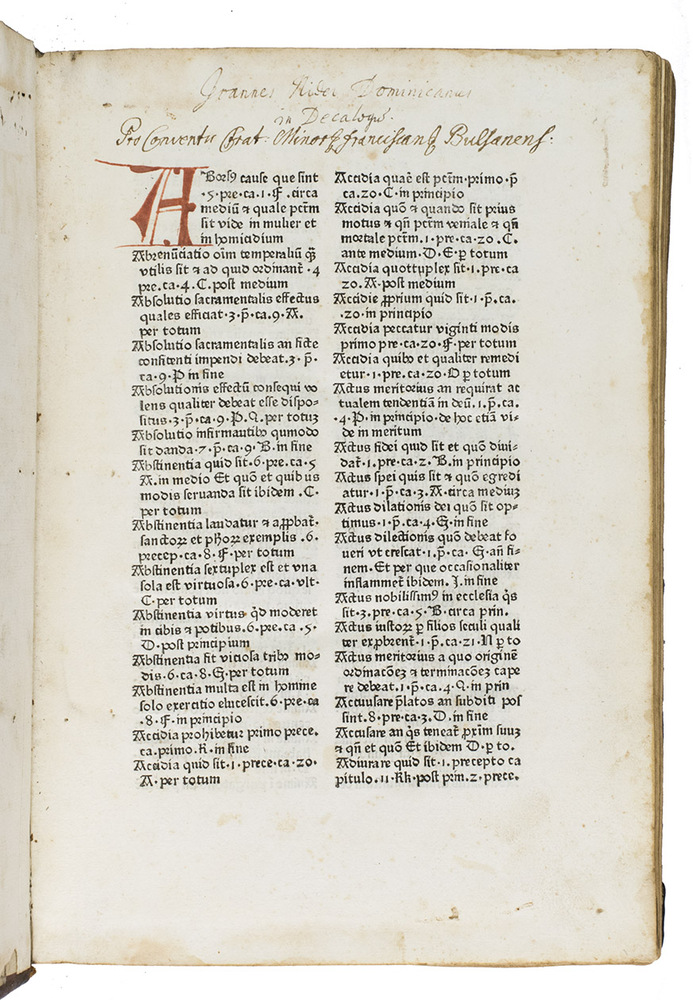 Joannes Nider Dominicanus
in Decalogū.
Pro Conventu Frat: Minorꝝ franciscanꝝ Bulsanens:
ABorsꝰ cause que sint
.5.pre.ca.1.F.circa
mediū ⁊ quale pctm̄
sit vide in mulier et
in homicidium
Abrenūciatio oīm temporaliū
vtilis sit ⁊ ad quid ordinant̄.4
pre.ca.4.C.post medium
Absolutio sacramentalis effectus
quales efficiat.3.p̄.ca.9.A.
per totum
Absolutio sacramentalis an ficte
confitenti impendi debeat.3.p̄.
ca.9.P in fine
Absolutionis effectū consequi vo
lens qualiter debeat esse dispo-
situs.3.p̄.ca.9.P.Q.per totuꝫ
Absolutio infirmantibꝰ qumodo
sit danda.7.p̄.ca.9.B.in fine
Abstinentia quid sit.6.pre.ca.5
A.in medio Et quō et quibus
modis seruanda sit ibidem.C.
per totum
Abstinentia laudatur ⁊ aꝓbat̄.
sanctoꝝ et pħoꝝ exemplis.6.
precep.ca.8.F.per totum
Abstinentia sextuplex est et vna
sola est virtuosa.6.pre.ca.vlt.
C.per totum
Abstinentia virtus qd̄ moderet
in cibis ⁊ potibus.6.pre.ca.5.
D.post principium
Abstinentia fit viciosa tribꝰ mo-
dis.6.ca.8.G.per totum
Abstinentia multa est in homine
solo exercitio elucescit.6.pre.ca
.8.F.in principio
Accidia prohibetur primo prece.
ca.primo.R.in fine
Accidia quid sit.1.prece.ca.20.
A.per totum
Accidia quaē est pctm̄.primo.p̄
ca.20.C.in principio
Accidia quō ⁊ quando sit prius
motus ⁊ qn̄ pctm̄ veniale ⁊ qn̄
mortale pctm̄.1.pre.ca.20.C.
ante medium.D.E.ꝑ totum
Accidia quottuplex sit.1.pre.ca
20.A.post medium
Accidie ꝓprium quid sit.1.p̄.ca.
.20.in principio
Accidia peccatur viginti modis
primo pre.ca.20.F.per totum
Accidia quibꝰ et qualiter remedi
etur.1.pre.ca.20.O ꝑ totum
Actus meritorius an requirat ac
tualem tendentiā in deū.1.p̄.ca.
.4.P.in principio.de hoc etiā vi-
de in meritum
Actus fidei quid sit et quō diui-
dat̄.1.pre.ca.2.B.in principio
Actus spei quis sit ⁊ quō egredi
atur.1.p̄.ca.3.A.circa mediuꝫ
Actus dilationis dei quō sit op-
timus.1.p̄.ca.4.G.in fine
Actus dilectionis quō debeat fo
ueri vt crescat.1.p̄.ca.G.añ fi-
nem.Et per que occasionaliter
inflammet̄ ibidem.J.in fine
Actus nobilissimꝰ in ecclesia q̄s
sit.3.pre.ca.5.B.circa prin.
Actus iustoꝝ ꝑ filios seculi quali
ter exꝓbrent̄.1.p̄.ca.21.N ꝑ to
Actus meritorius a quo originē
ordinacōeꝫ ⁊ terminacōeꝫ cape
re debeat.1.p̄.ca.4.Q.in prin
Accusare p̄latos an subditi pos
sint.8.pre.ca.3.D.in fine
Accusare an q̄s teneat̄ ꝓxīm suuꝫ
⁊ qn̄ et quō Et ibidem D.ꝑ to.
Adiurare quid sit.1.precepto ca
pitulo.11.Rk.post prin.2.prece.